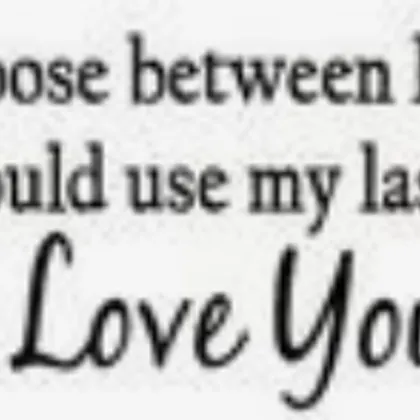 oose between
ould use my las
Love You